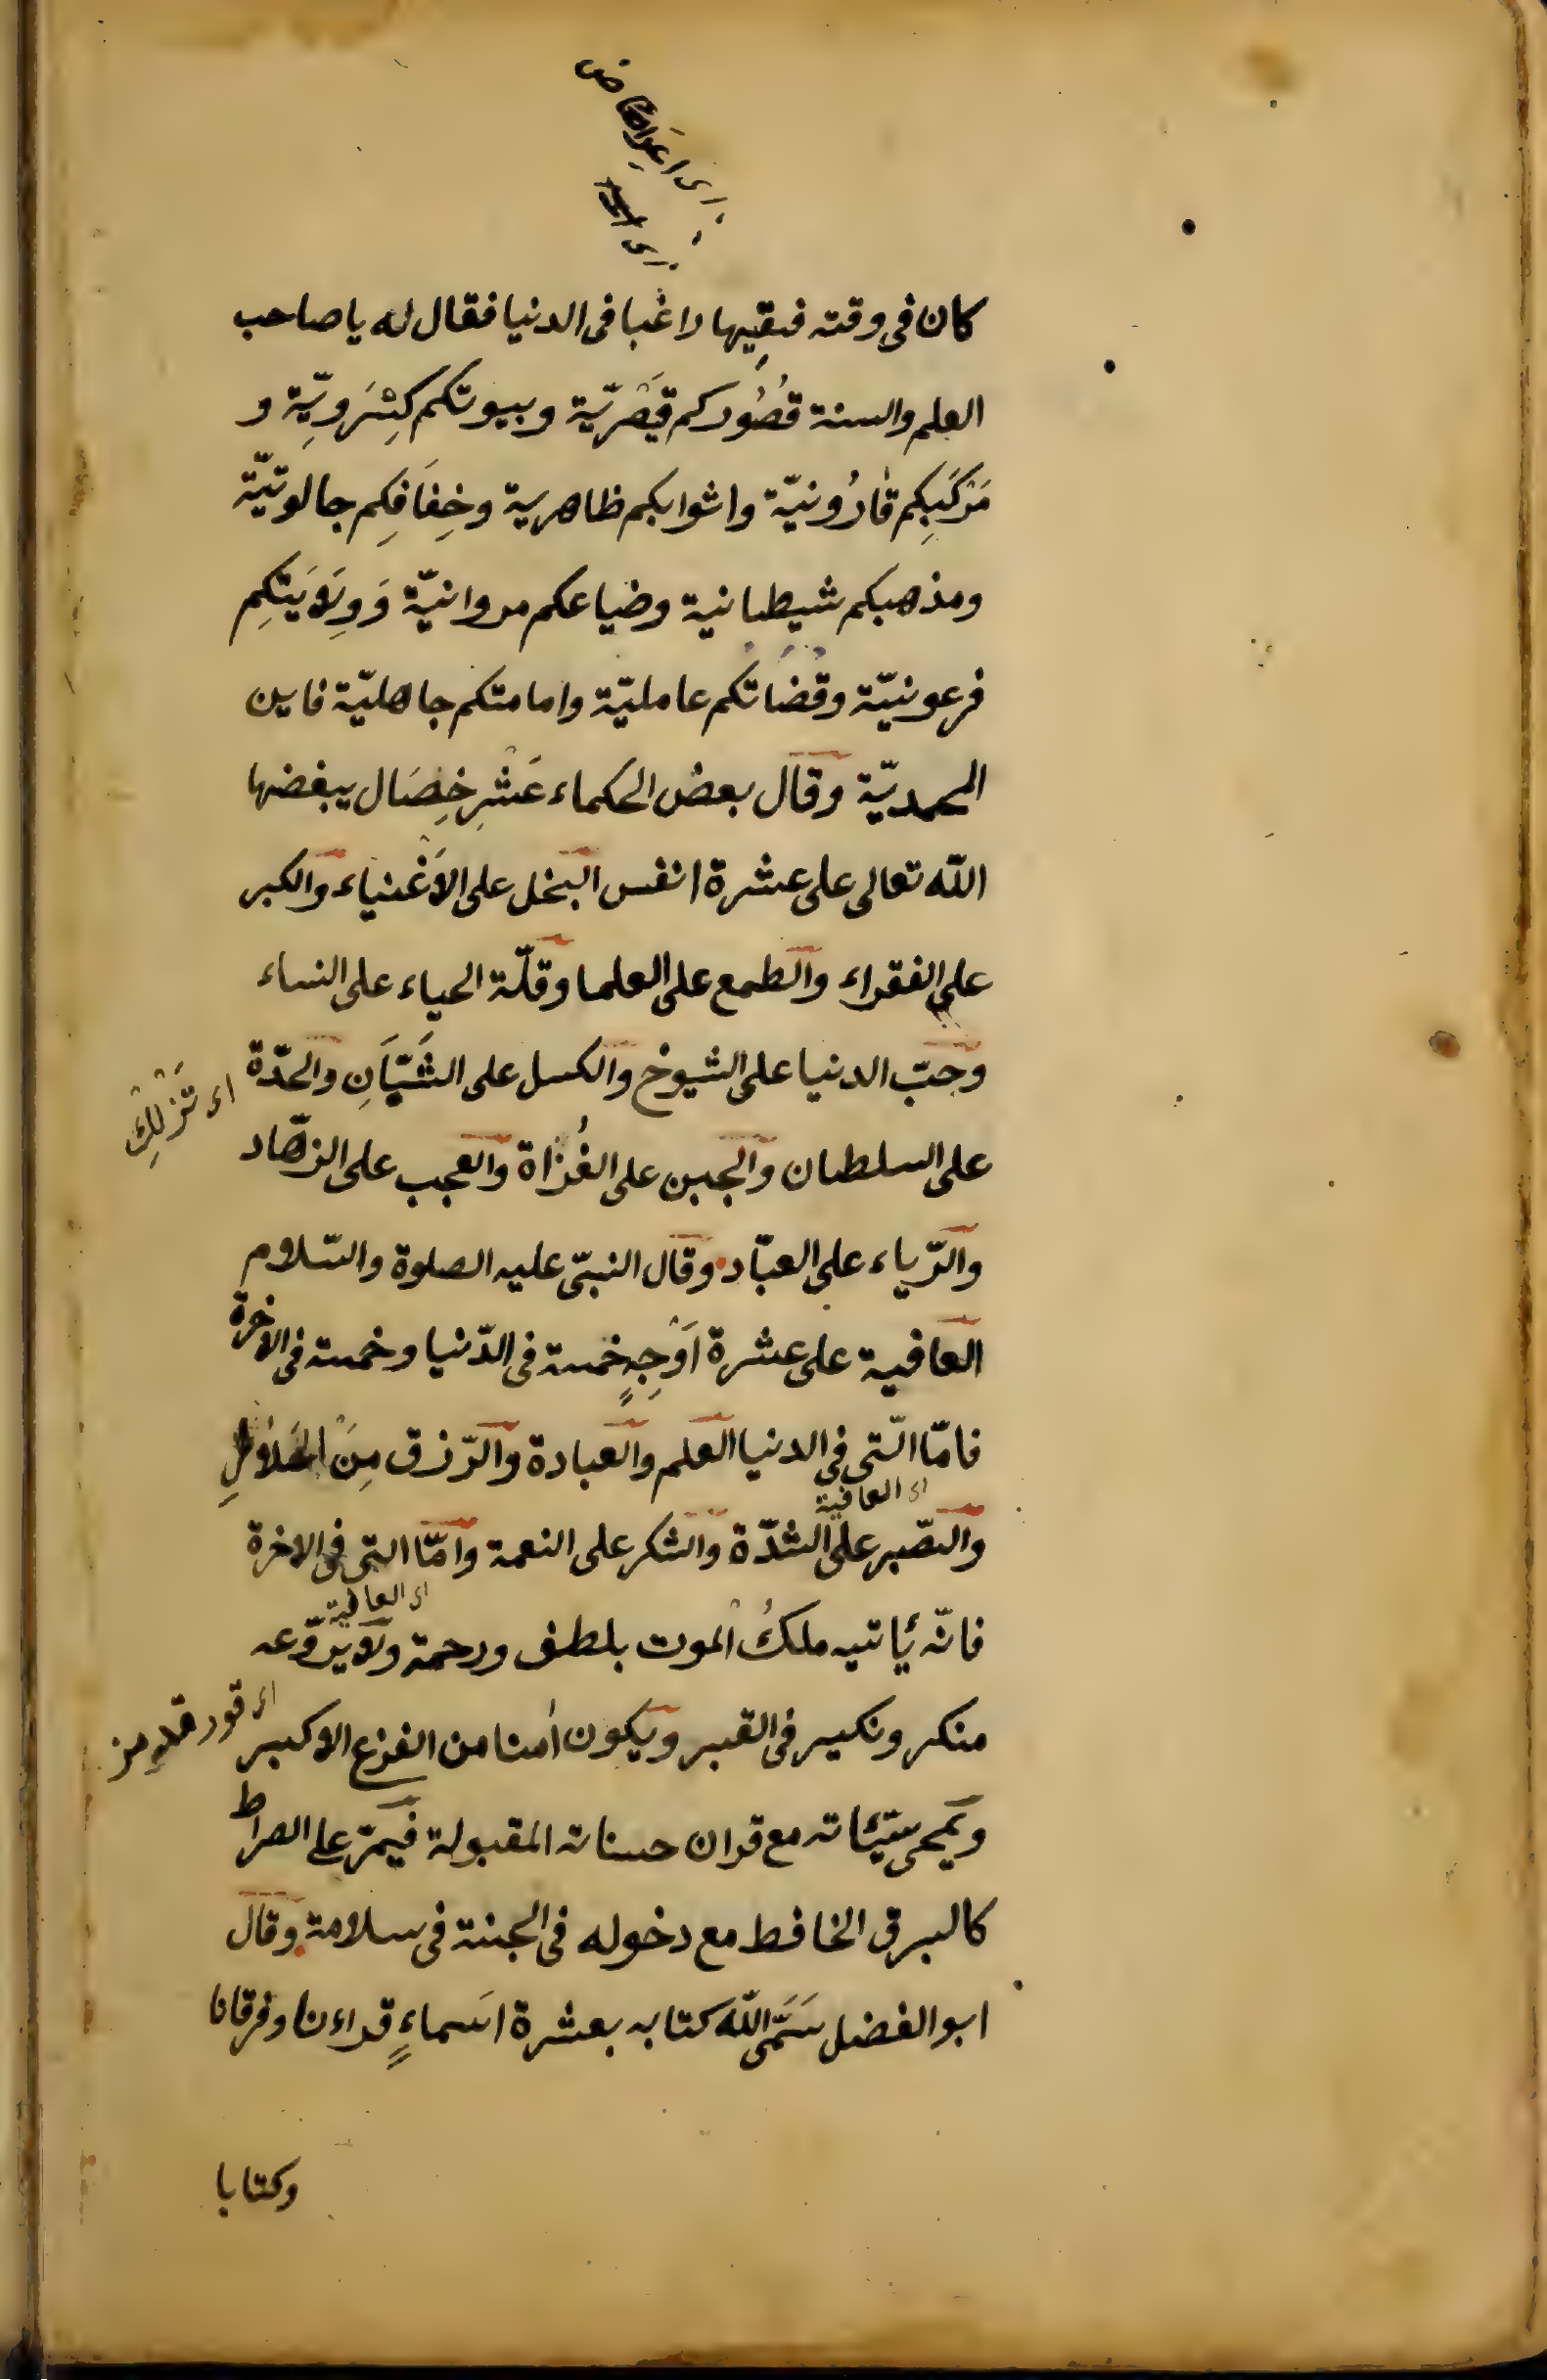 كان فى وقته فقيها راغبا فى الدنيا فقال له يا صاحب
العلم والسنة قُصُوركم قَيْصَريّة وبيوتكم كِسْرَوِيّة و
مَرْكَبِكم قٰارُونيّة واثوابكم ظاهرية وخِفَافِكِم جالوتيّة
ومذهبكم شيطانية وضياعكم مروانيّة وَوِلَايَتكِم
فرعونيّة وقُضَاتكم عامليّة وامامتكم جاهليّة فاين
المحمديّة وقال بعض الحكماء عَشْرِ خِصَال يبغضها
الله تعالى على عشرة انفس البخل على الاَغْنياء والكبر
على الفقراء والطمع على العلما وقلّة الحياء على النساء
وحبّ الدنيا على الشيوخ والكسل على الشَّبَّانِ والحدّة
اى تَزْلِكْ
على السلطان والجبن على الغُزاة والعجب على الزهّاد
والرّياء على العبّاد وقال النبىّ عليه الصلوة والسّلام
العافية على عشرة اَوْجِهٍ خمسة فى الدّنيا وخمسة فى الاخرة
فامّا الّتى فى الدنيا العلم والعبادة والرّزق مِنَ الحَلَالِ
اى العافية
والصّبر على الشدّة والشكر على النعمة وامّا التى فى الاخرة
اى العافية
فانّه يأتيه ملكُ الموت بلطف ورحمة ولا يروّعه
منكر ونكير فى القبر ويكون اٰمنا من الفزع الاكبر
اى قورقلرمز
ويمحى سيّئاته مع قران حسناته المقبولة فيمرّ على الصراط
كالبرق الخافط مع دخوله فى الجنة فى سلامة وقال
ابو الفضل سَمَّى اللّٰه كتابه بعشرة اَسماءٍ قراءنا وفرقانا
وكتابا